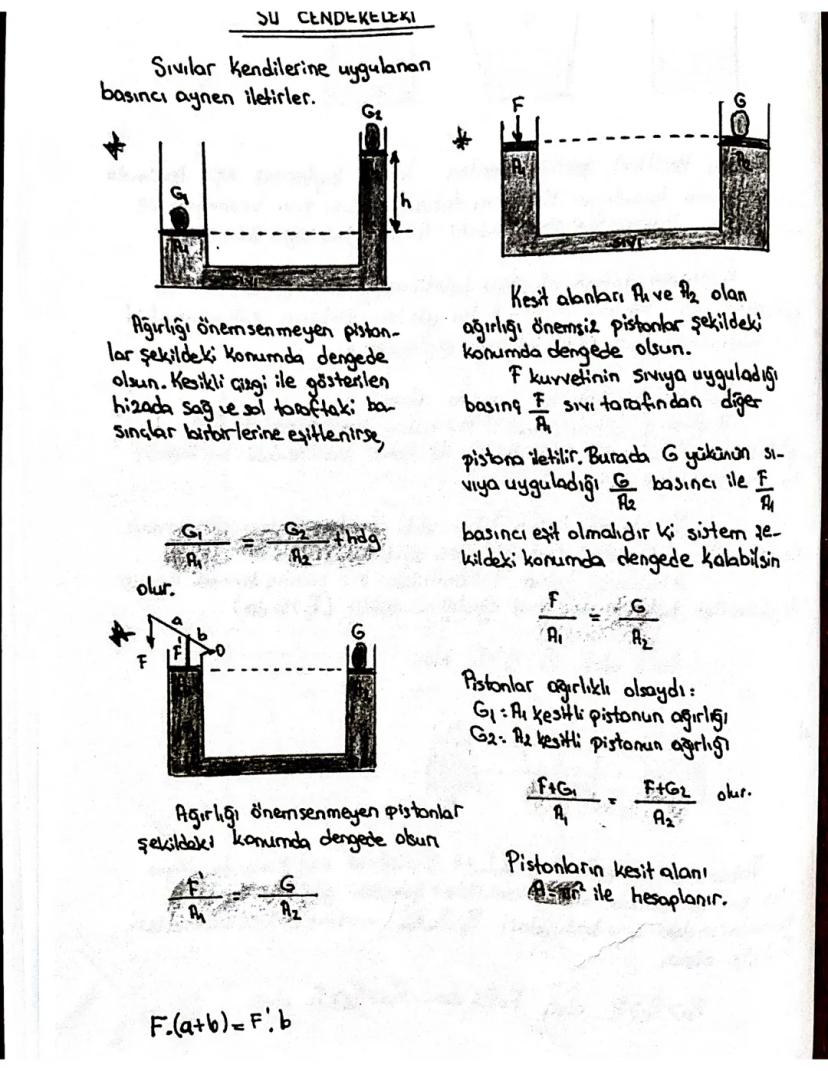 SU CENDEKELEKİ
Sıvılar kendilerine uygulanan
basıncı aynen iletirler.
G1
A1
G2
h
Ağırlığı önemsenmeyen piston-
lar şekildeki konumda dengede
olsun. Kesikli çizgi ile gösterilen
hizada sağ ve sol taraftaki ba-
sınçlar birbirlerine eşitlenirse,
G1/A1 = G2/A2 + hdg
olur.
a
b
F
F'
O
G
Ağırlığı önemsenmeyen pistonlar
şekildeki konumda dengede olsun
F'/A1 = G/A2
F.(a+b)=F'.b
F
A1
G
A2
SIVI
Kesit alanları A1 ve A2 olan
ağırlığı önemsiz pistonlar şekildeki
konumda dengede olsun.
F kuvvetinin sıvıya uyguladığı
basınç F/A1 sıvı tarafından diğer
pistona iletilir. Burada G yükünün sı-
vıya uyguladığı G/A2 basıncı ile F/A1
basıncı eşit olmalıdır ki sistem şe-
kildeki konumda dengede kalabilsin
F/A1 = G/A2
Pistonlar ağırlıklı olsaydı:
G1: A1 kesitli pistonun ağırlığı
G2: A2 kesitli pistonun ağırlığı
F+G1/A1 = F+G2/A2 olur.
Pistonların kesit alanı
A=πr² ile hesaplanır.